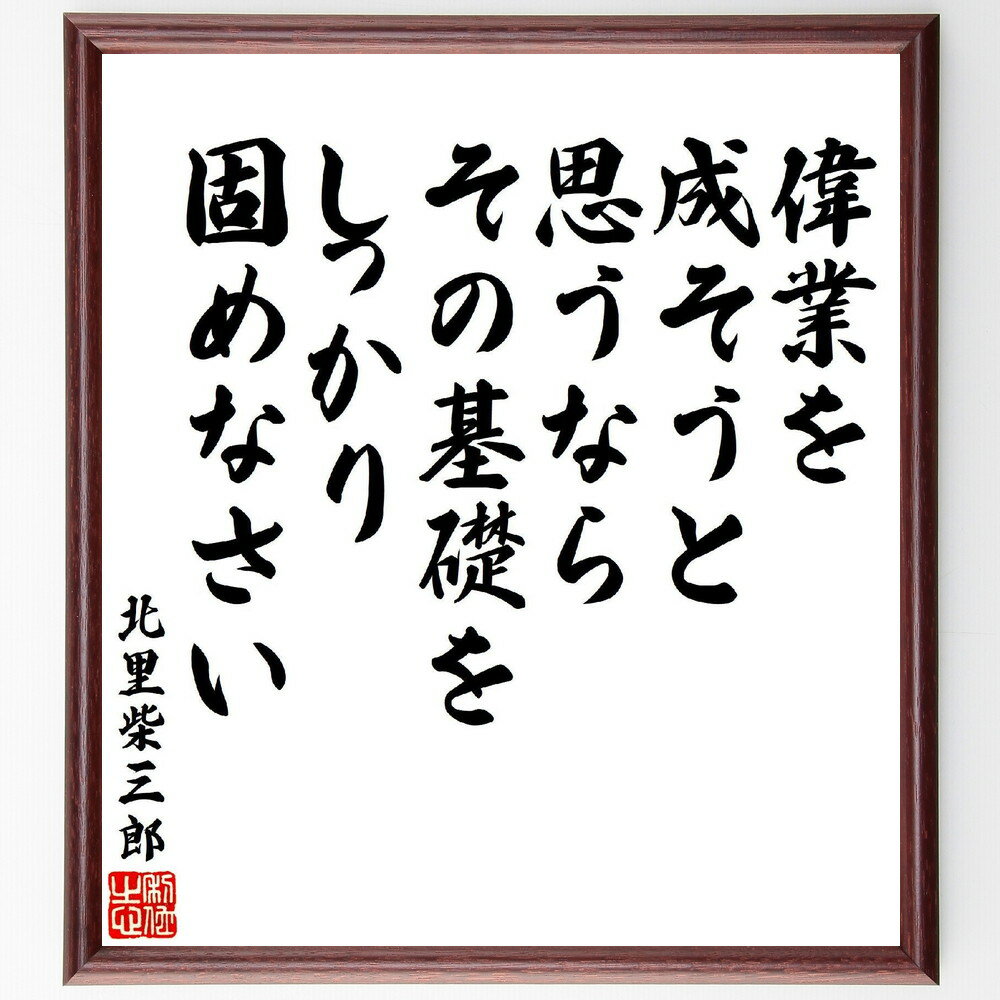 偉業を
成そうと
思うなら
その基礎を
しっかり
固めなさい
北里柴三郎